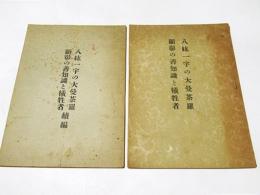 八紘一宇の大曼荼羅
顕彰の善知識と犠牲者 続編
八紘一宇の大曼荼羅
顕彰の善知識と犠牲者